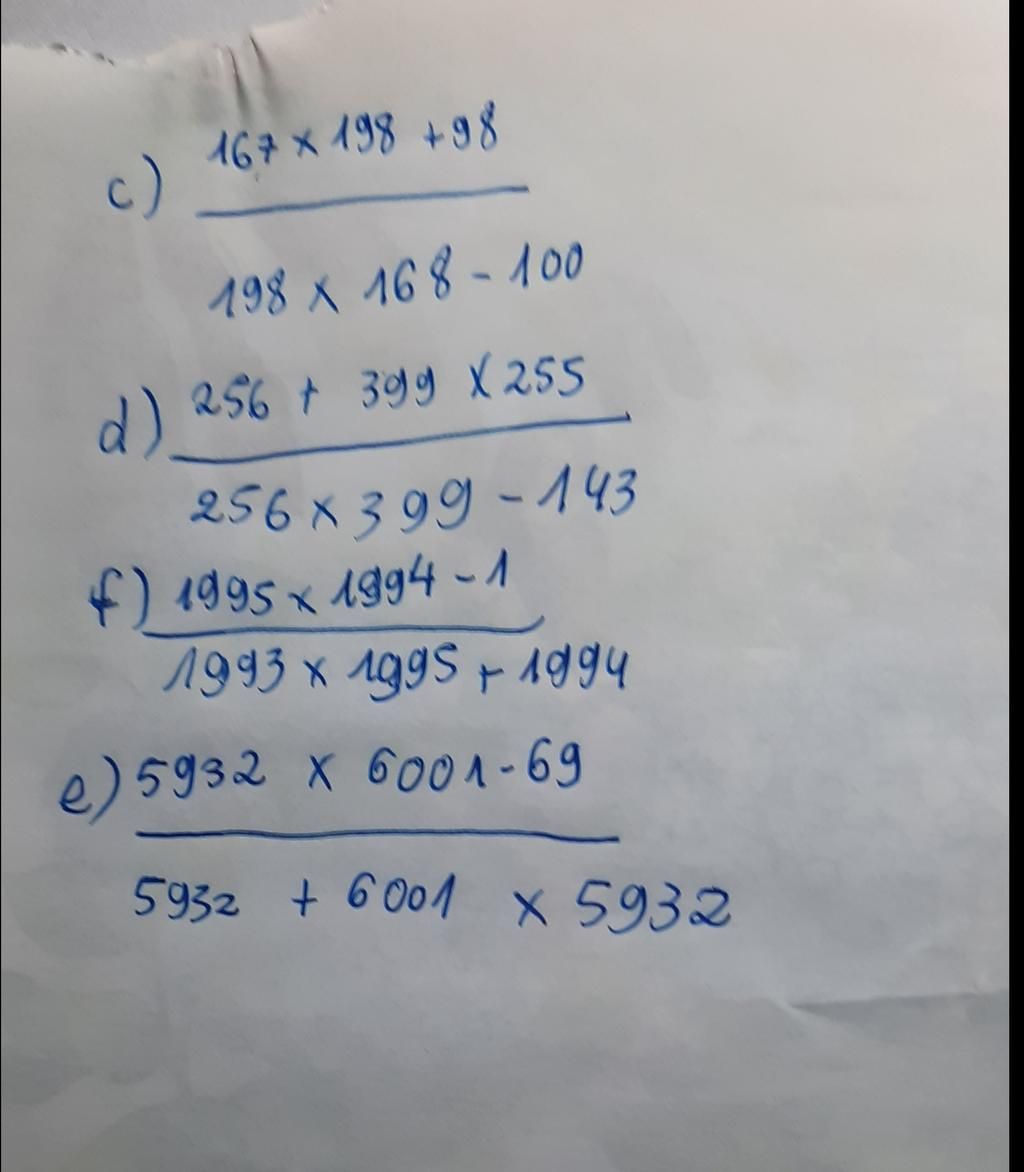 167 × 198 + 98
c)
198 × 168 - 100
d) 256 + 399 × 255
256 × 399 - 143
f) 1995 × 1994 - 1
1993 × 1995 + 1994
e) 5932 × 6001 - 69
5932 + 6001 × 5932